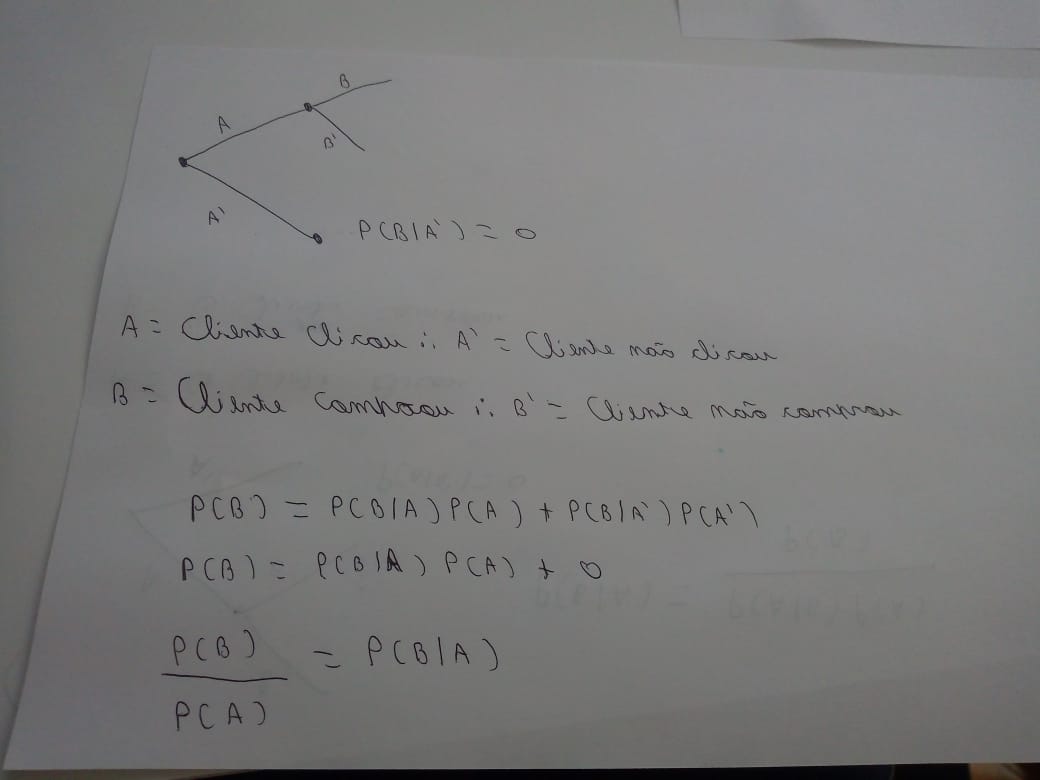 B
A
B'
A'
P(B|A') = 0
A = Cliente clicou ∴ A' = Cliente não clicou
B = Cliente comprou ∴ B' = Cliente não comprou
P(B) = P(B|A)P(A) + P(B|A')P(A')
P(B) = P(B|A) P(A) + 0
P(B)
= P(B|A)
P(A)